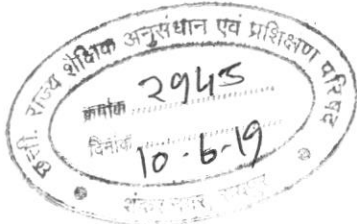 छत्ती. राज्य शैक्षिक अनुसंधान एवं प्रशिक्षण परिषद
क्रमांक 2945
दिनांक 10-6-19
शंकर नगर, रायपुर